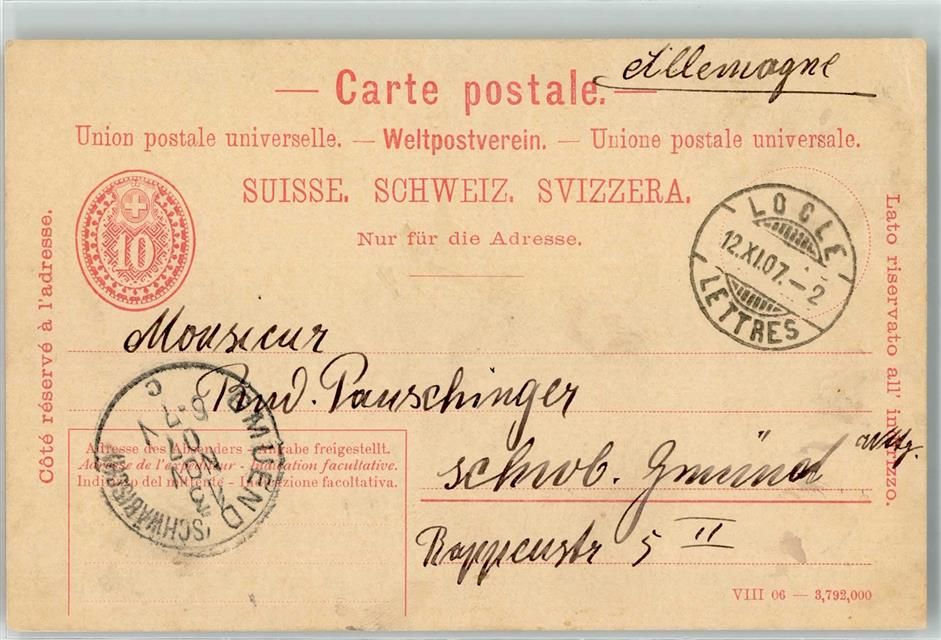 Allemagne
— Carte postale. —
Union postale universelle. — Weltpostverein. — Unione postale universale.
SUISSE. SCHWEIZ. SVIZZERA.
Nur für die Adresse.
10
LOCLE
12.XI.07.–2
LETTRES
Côté réservé à l'adresse.
Lato riservato all' indirizzo.
Monsieur
Rud. Pauschinger
schwb. Gmünd
Rappenstr 5 II
GMUEND
(SCHWÄBISCH)
13 NOV 07
Adresse des Absenders - Angabe freigestellt.
Adresse de l'expéditeur - Indication facultative.
Indirizzo del mittente - Indicazione facoltativa.
VIII 06 — 3,792,000